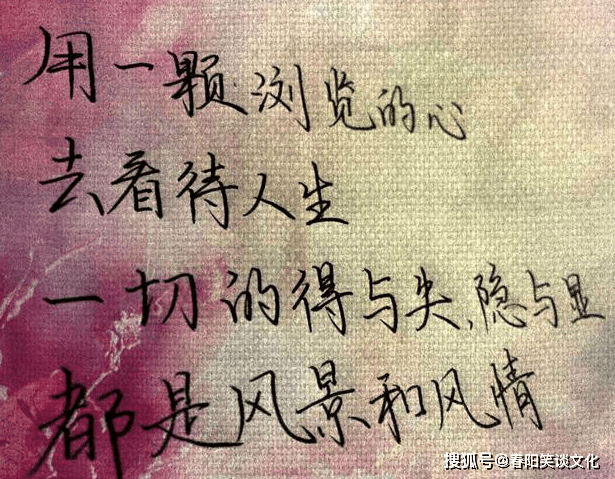 用一颗浏览的心
去看待人生
一切的得与失、隐与显
都是风景和风情
搜狐号@春阳笑谈文化